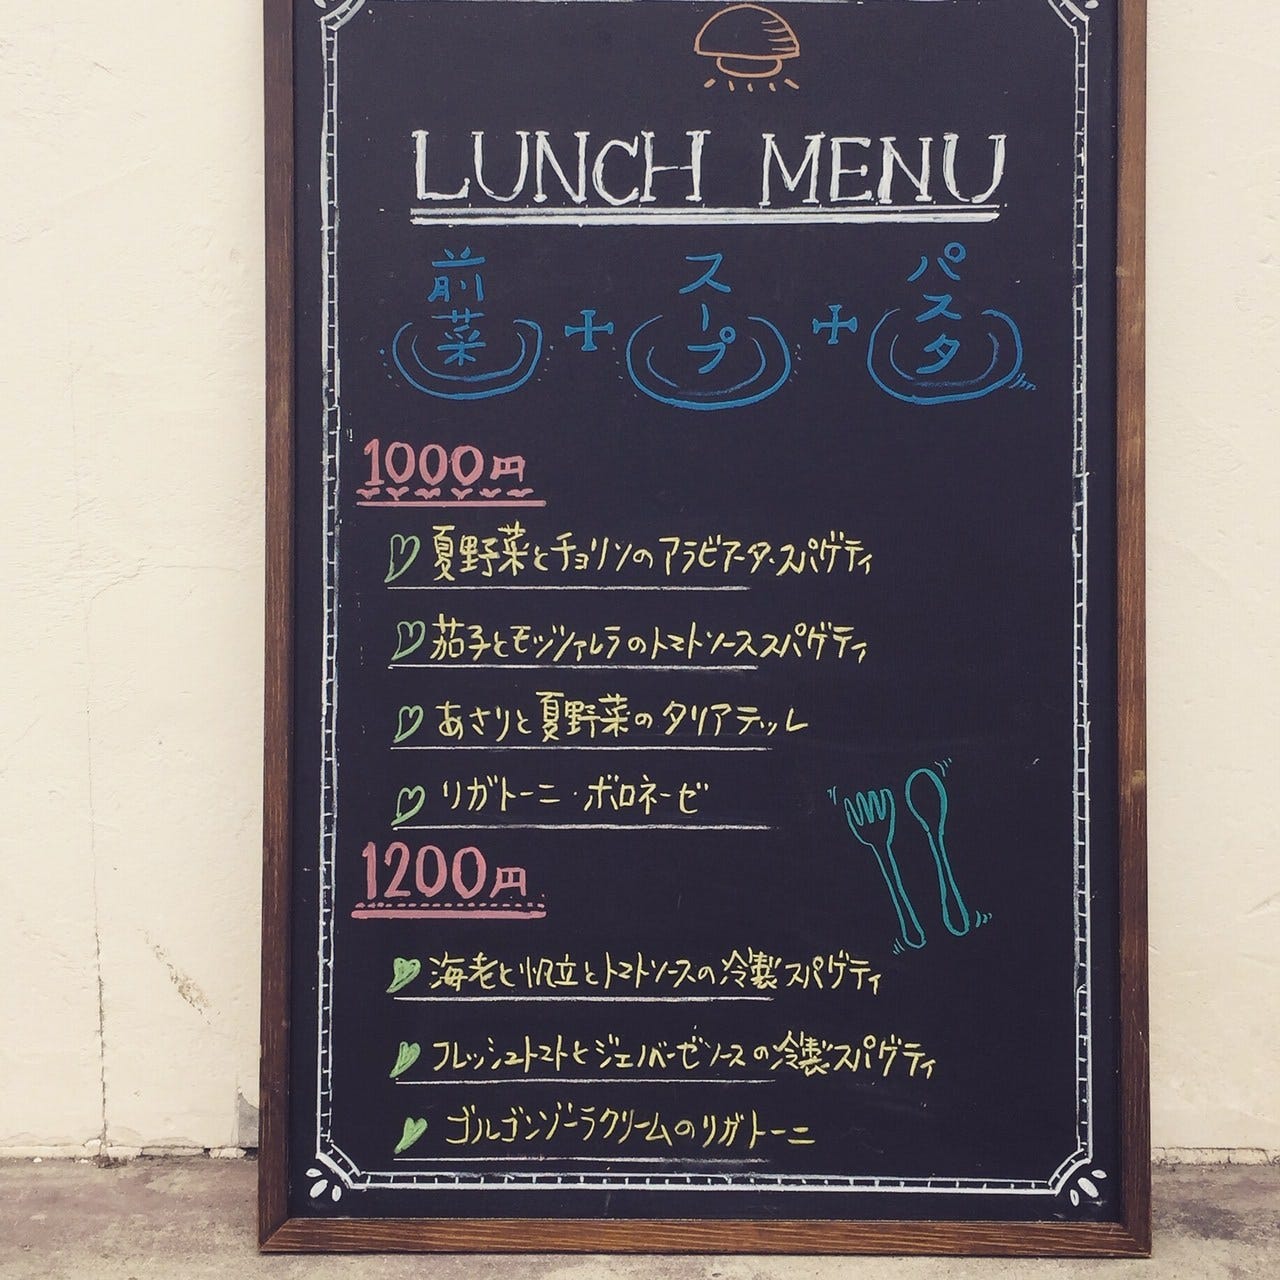 LUNCH MENU
前菜 + スープ + パスタ
1000円
夏野菜とチョリソのアラビアータ・スパゲティ
茄子とモッツァレラのトマトソーススパゲティ
あさりと夏野菜のタリアテッレ
リガトーニ・ボロネーゼ
1200円
海老と帆立とトマトソースの冷製スパゲティ
フレッシュトマトとジェノバーゼソースの冷製スパゲティ
ゴルゴンゾーラクリームのリガトーニ